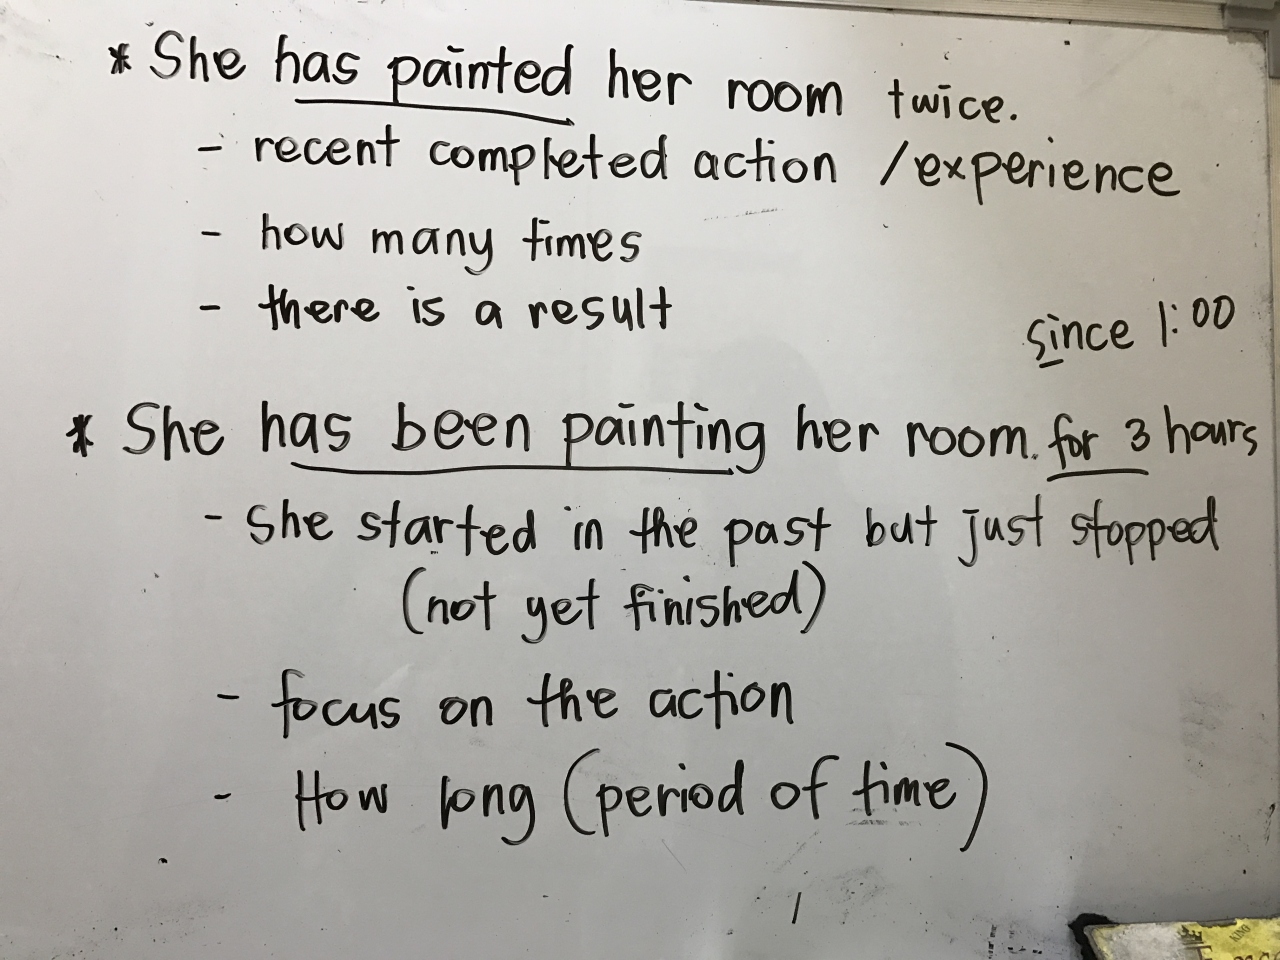 * She has painted her room twice.
- recent completed action / experience
- how many times
- there is a result
since 1:00
* She has been painting her room. for 3 hours
- She started in the past but just stopped
(not yet finished)
- focus on the action
- How long (period of time)
KING